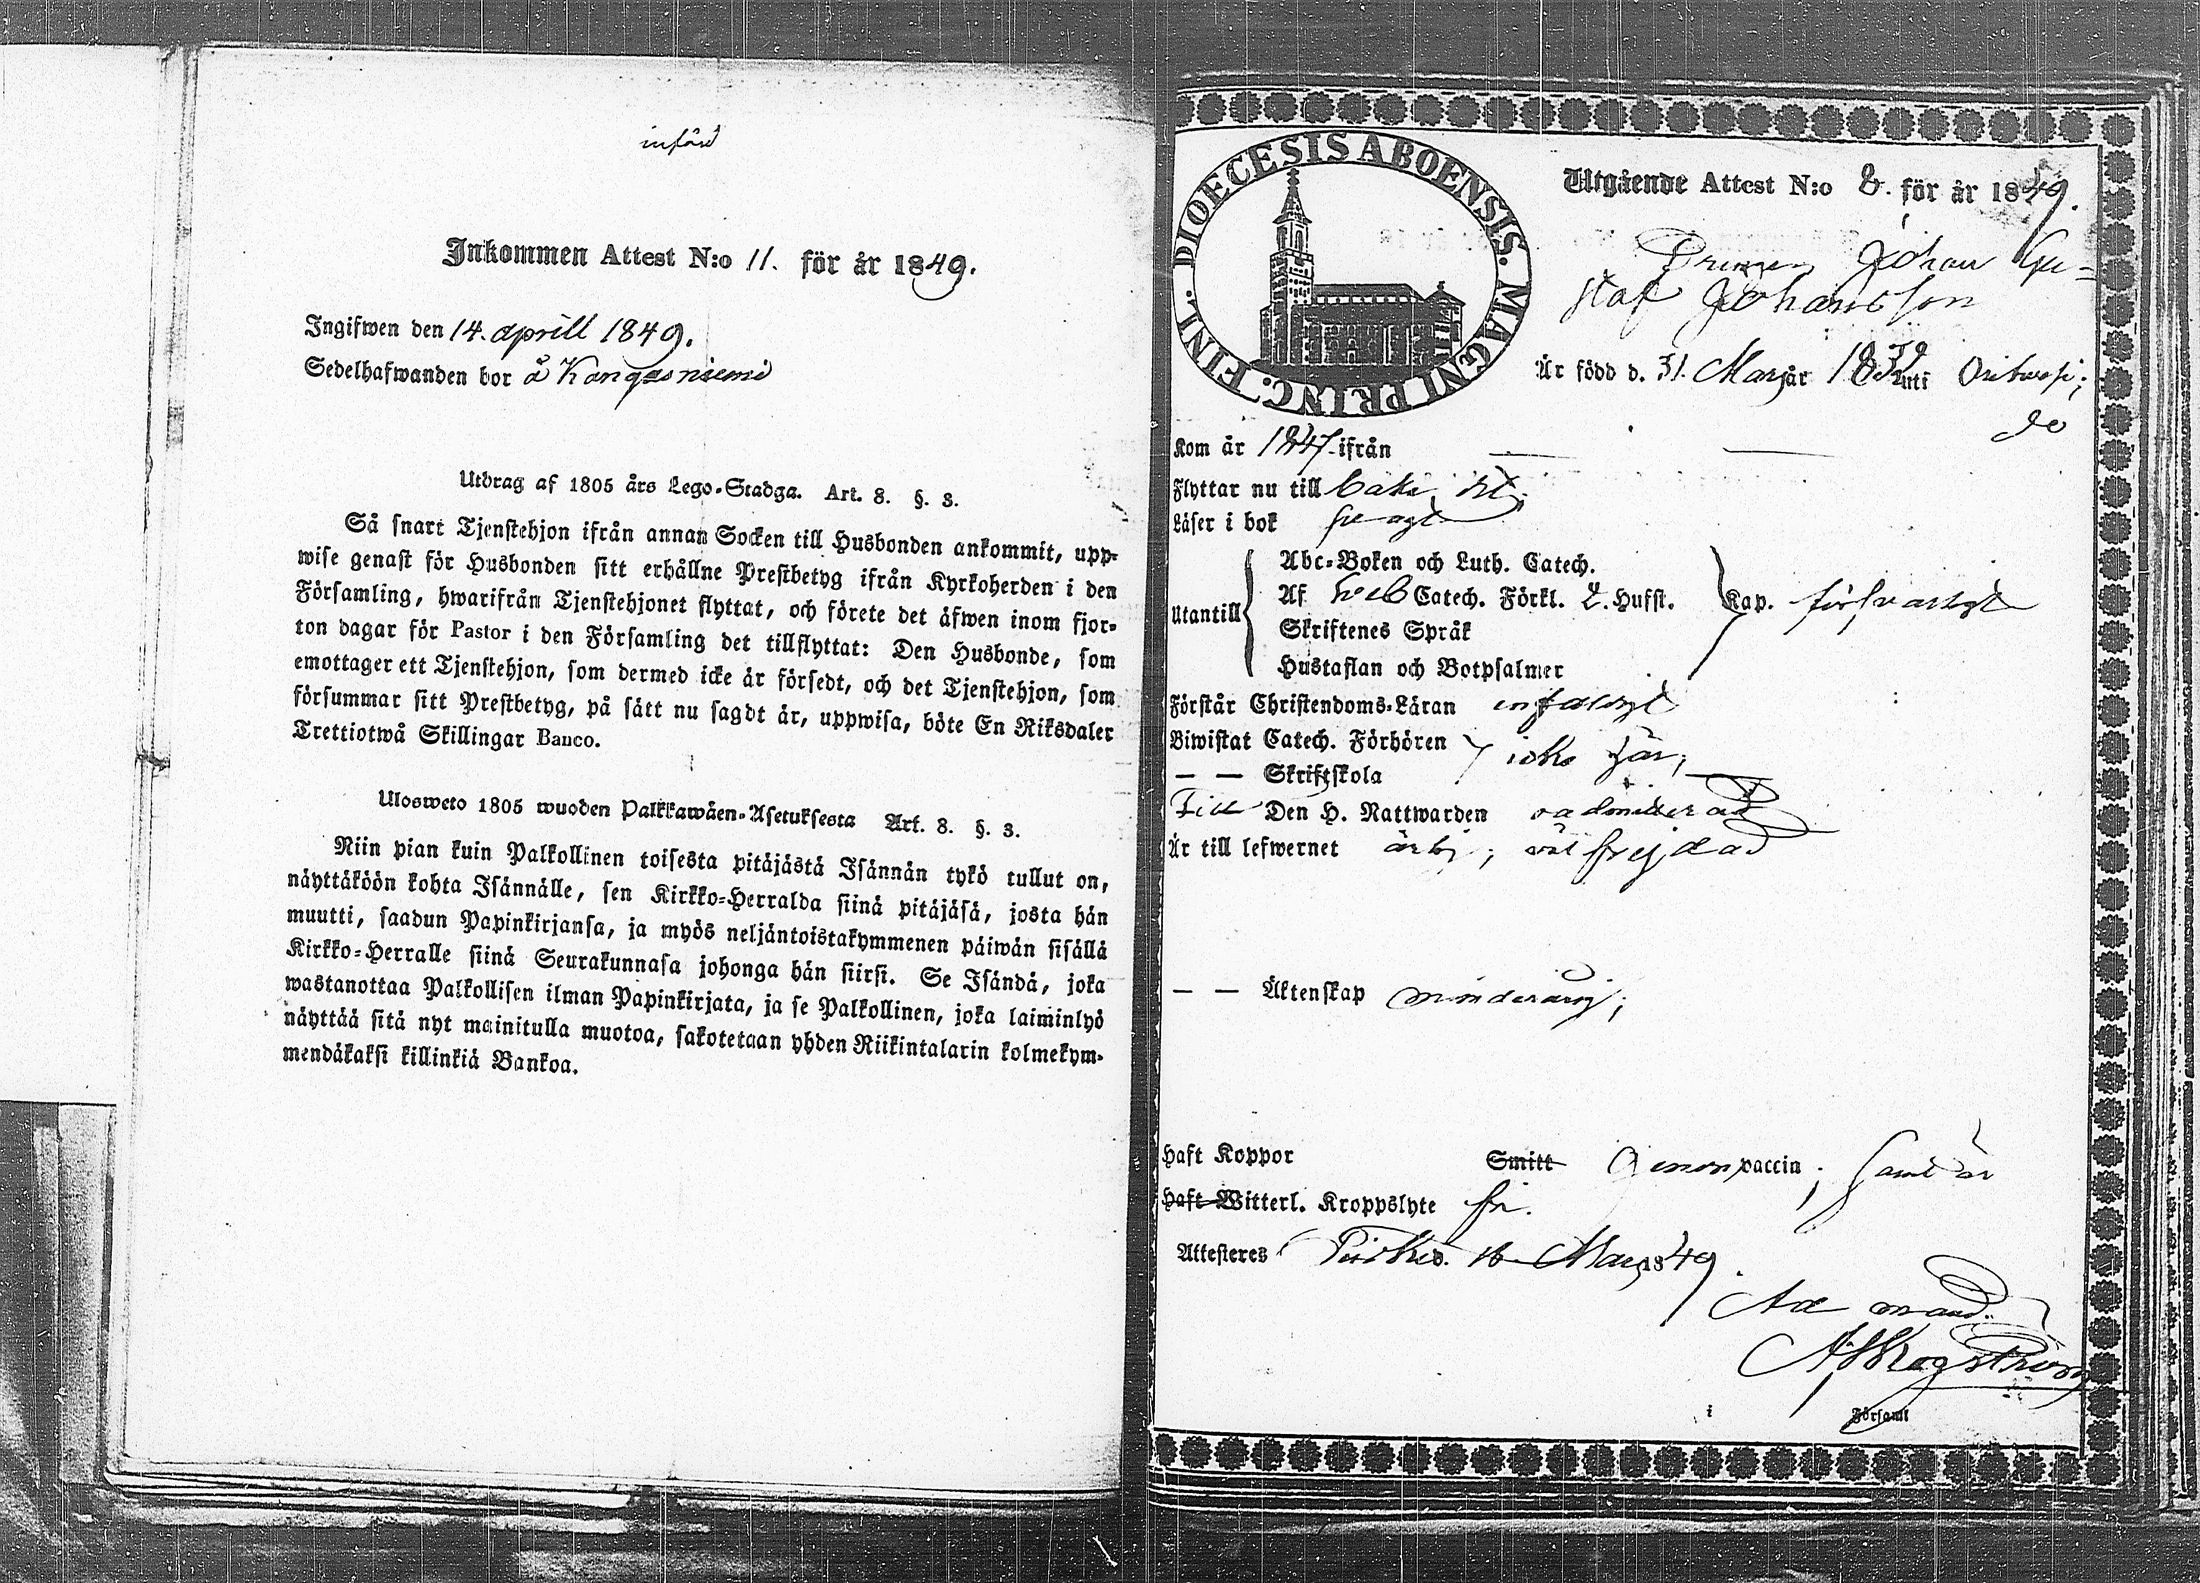 införd
Inkommen Attest N:o 11. för år 1849.
Ingifwen den 14. aprill 1849.
Sedelhafwanden bor å Kangasniemi
Utdrag af 1805 års Lego-Stadga. Art. 8. §. 3.
Så snart Tjenstehjon ifrån annan Socken till Husbonden ankommit, upp-
wise genast för Husbonden sitt erhållne Prestbetyg ifrån Kyrkoherden i den
Församling, hwarifrån Tjenstehjonet flyttat, och förete det äfwen inom fjor-
ton dagar för Pastor i den Församling det tillflyttat: Den Husbonde, som
emottager ett Tjenstehjon, som dermed icke är försedt, och det Tjenstehjon, som
försummar sitt Prestbetyg, på sätt nu sagdt är, uppwisa, böte En Riksdaler
Trettiotwå Skillingar Banco.
Ulosweto 1805 wuoden Palkkawäen-Asetuksesta Art. 8. §. 3.
Niin pian kuin Palkollinen toisesta pitäjästä Isännän tykö tullut on,
näyttäköön kohta Isännälle, sen Kirkko-Herralda siinä pitäjäsä, josta hän
muutti, saadun Papinkirjansa, ja myös neljäntoistakymmenen päiwän sisällä
Kirkko-Herralle siinä Seurakunnasa johonga hän siirsi. Se Isändä, joka
wastanottaa Palkollisen ilman Papinkirjata, ja se Palkollinen, joka laiminlyö
näyttää sitä nyt mainitulla muotoa, sakotetaan yhden Riikintalarin kolmekym-
mendäkaksi killinkiä Bankoa.
DIOECESIS ABOENSIS. MAGNI PRINC. FINL.
Utgående Attest N:o 8. för år 1849.
Drengen Johan Gu-
staf Johansson
Är född d. 31. Mars år 1832 uti Oritwesi;
Kom år 1847 ifrån
Flyttar nu till
Läser i bok svagt
Abc-Boken och Luth. Catech.
Utantill Af Catech. Förkl. 2. Husst. Kap. försvarligt
Skriftenes Språk
Hustaflan och Botpsalmer
Förstår Christendoms-Läran enfaldigt
Biwistat Catech. Förhören icke här;
— — Skriftskola
Till Den H. Nattwarden oadmitterad
Är till lefwernet ärlig; väl frejdad
— — Äktenskap minderårig;
Haft Koppor Smitt Genom vaccin; samt är
Haft Witterl. Kroppslyte fri.
Attesteres d. 16 Mars 1849.
Ad mand.
i Församl